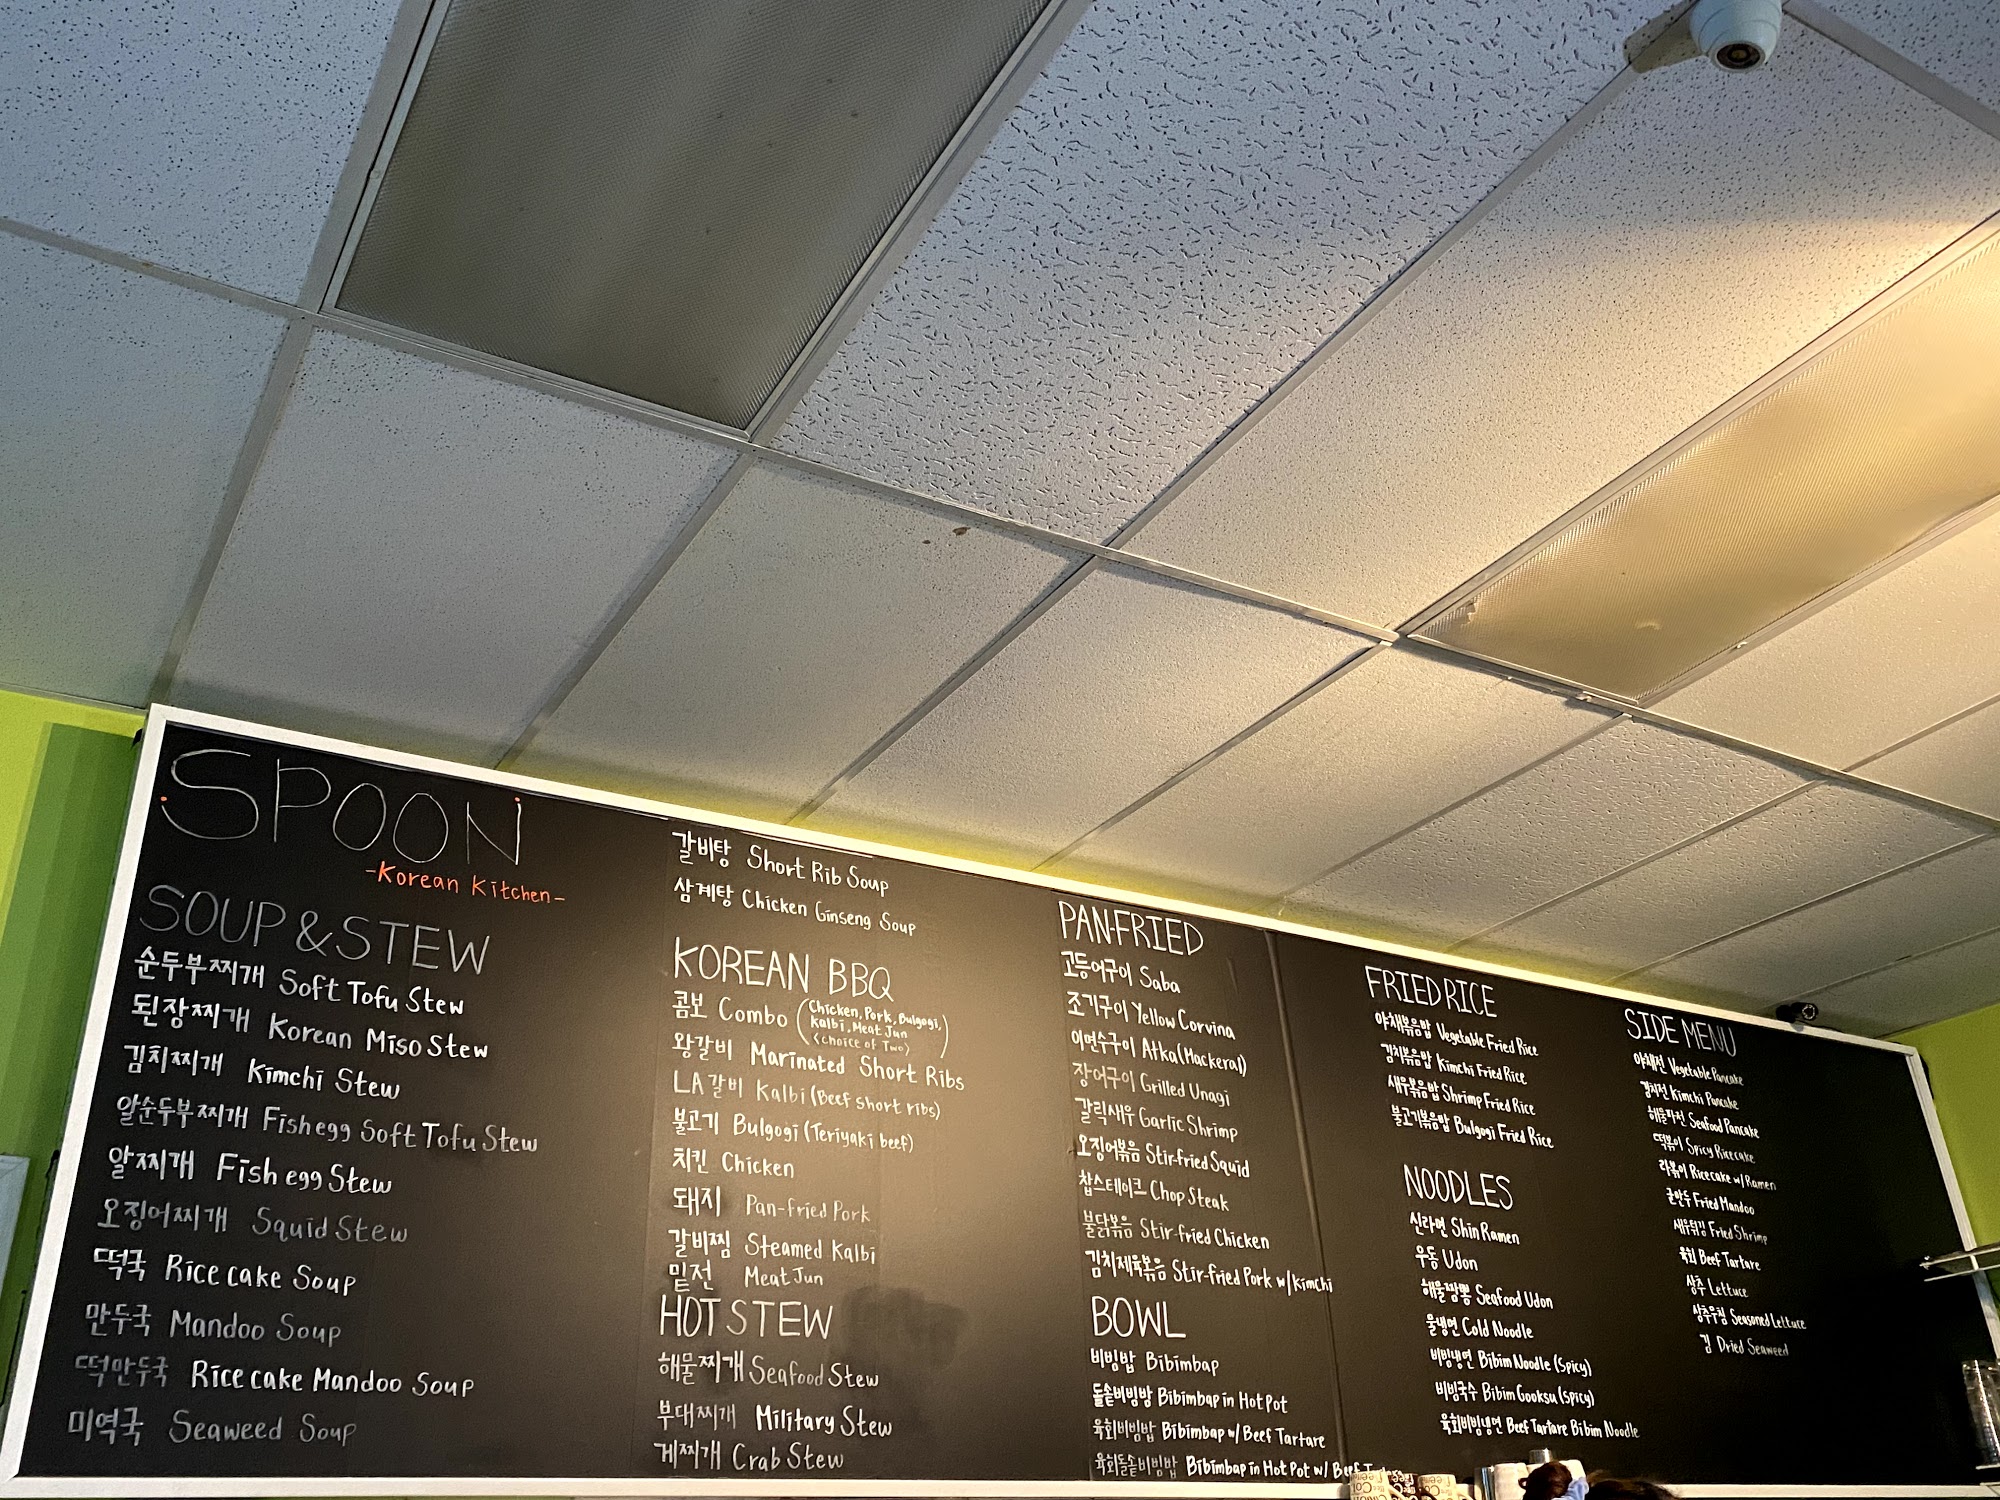 SPOON
-Korean Kitchen-
SOUP & STEW
순두부찌개 Soft Tofu Stew
된장찌개 Korean Miso Stew
김치찌개 Kimchi Stew
알순두부찌개 Fish egg Soft Tofu Stew
알찌개 Fish egg Stew
오징어찌개 Squid Stew
떡국 Rice cake Soup
만두국 Mandoo Soup
떡만두국 Rice cake Mandoo Soup
미역국 Seaweed Soup
갈비탕 Short Rib Soup
삼계탕 Chicken Ginseng Soup
KOREAN BBQ
콤보 Combo (Chicken, Pork, Bulgogi,
Kalbi, Meat Jun
<choice of Two>)
왕갈비 Marinated Short Ribs
LA갈비 Kalbi (Beef short ribs)
불고기 Bulgogi (Teriyaki beef)
치킨 Chicken
돼지 Pan-fried Pork
갈비찜 Steamed Kalbi
밑전 Meat Jun
HOT STEW
해물찌개 Seafood Stew
부대찌개 Military Stew
게찌개 Crab Stew
PAN-FRIED
고등어구이 Saba
조기구이 Yellow Corvina
이면수구이 Atka (Mackeral)
장어구이 Grilled Unagi
갈릭새우 Garlic Shrimp
오징어볶음 Stir-fried Squid
찹스테이크 Chop Steak
불닭볶음 Stir-fried Chicken
김치제육볶음 Stir-fried Pork w/ kimchi
BOWL
비빔밥 Bibimbap
돌솥비빔밥 Bibimbap in Hot Pot
육회비빔밥 Bibimbap w/ Beef Tartare
육회돌솥비빔밥 Bibimbap in Hot Pot w/ Beef
FRIED RICE
야채볶음밥 Vegetable Fried Rice
김치볶음밥 Kimchi Fried Rice
새우볶음밥 Shrimp Fried Rice
불고기볶음밥 Bulgogi Fried Rice
NOODLES
신라면 Shin Ramen
우동 Udon
해물짬뽕 Seafood Udon
물냉면 Cold Noodle
비빔냉면 Bibim Noodle (Spicy)
비빔국수 Bibim Gooksu (Spicy)
육회비빔냉면 Beef Tartare Bibim Noodle
SIDE MENU
야채전 Vegetable Pancake
김치전 Kimchi Pancake
해물파전 Seafood Pancake
떡볶이 Spicy Ricecake
라볶이 Ricecake w/ Ramen
군만두 Fried Mandoo
새우튀김 Fried Shrimp
육회 Beef Tartare
상추 Lettuce
상추무침 Seasoned Lettuce
김 Dried Seaweed